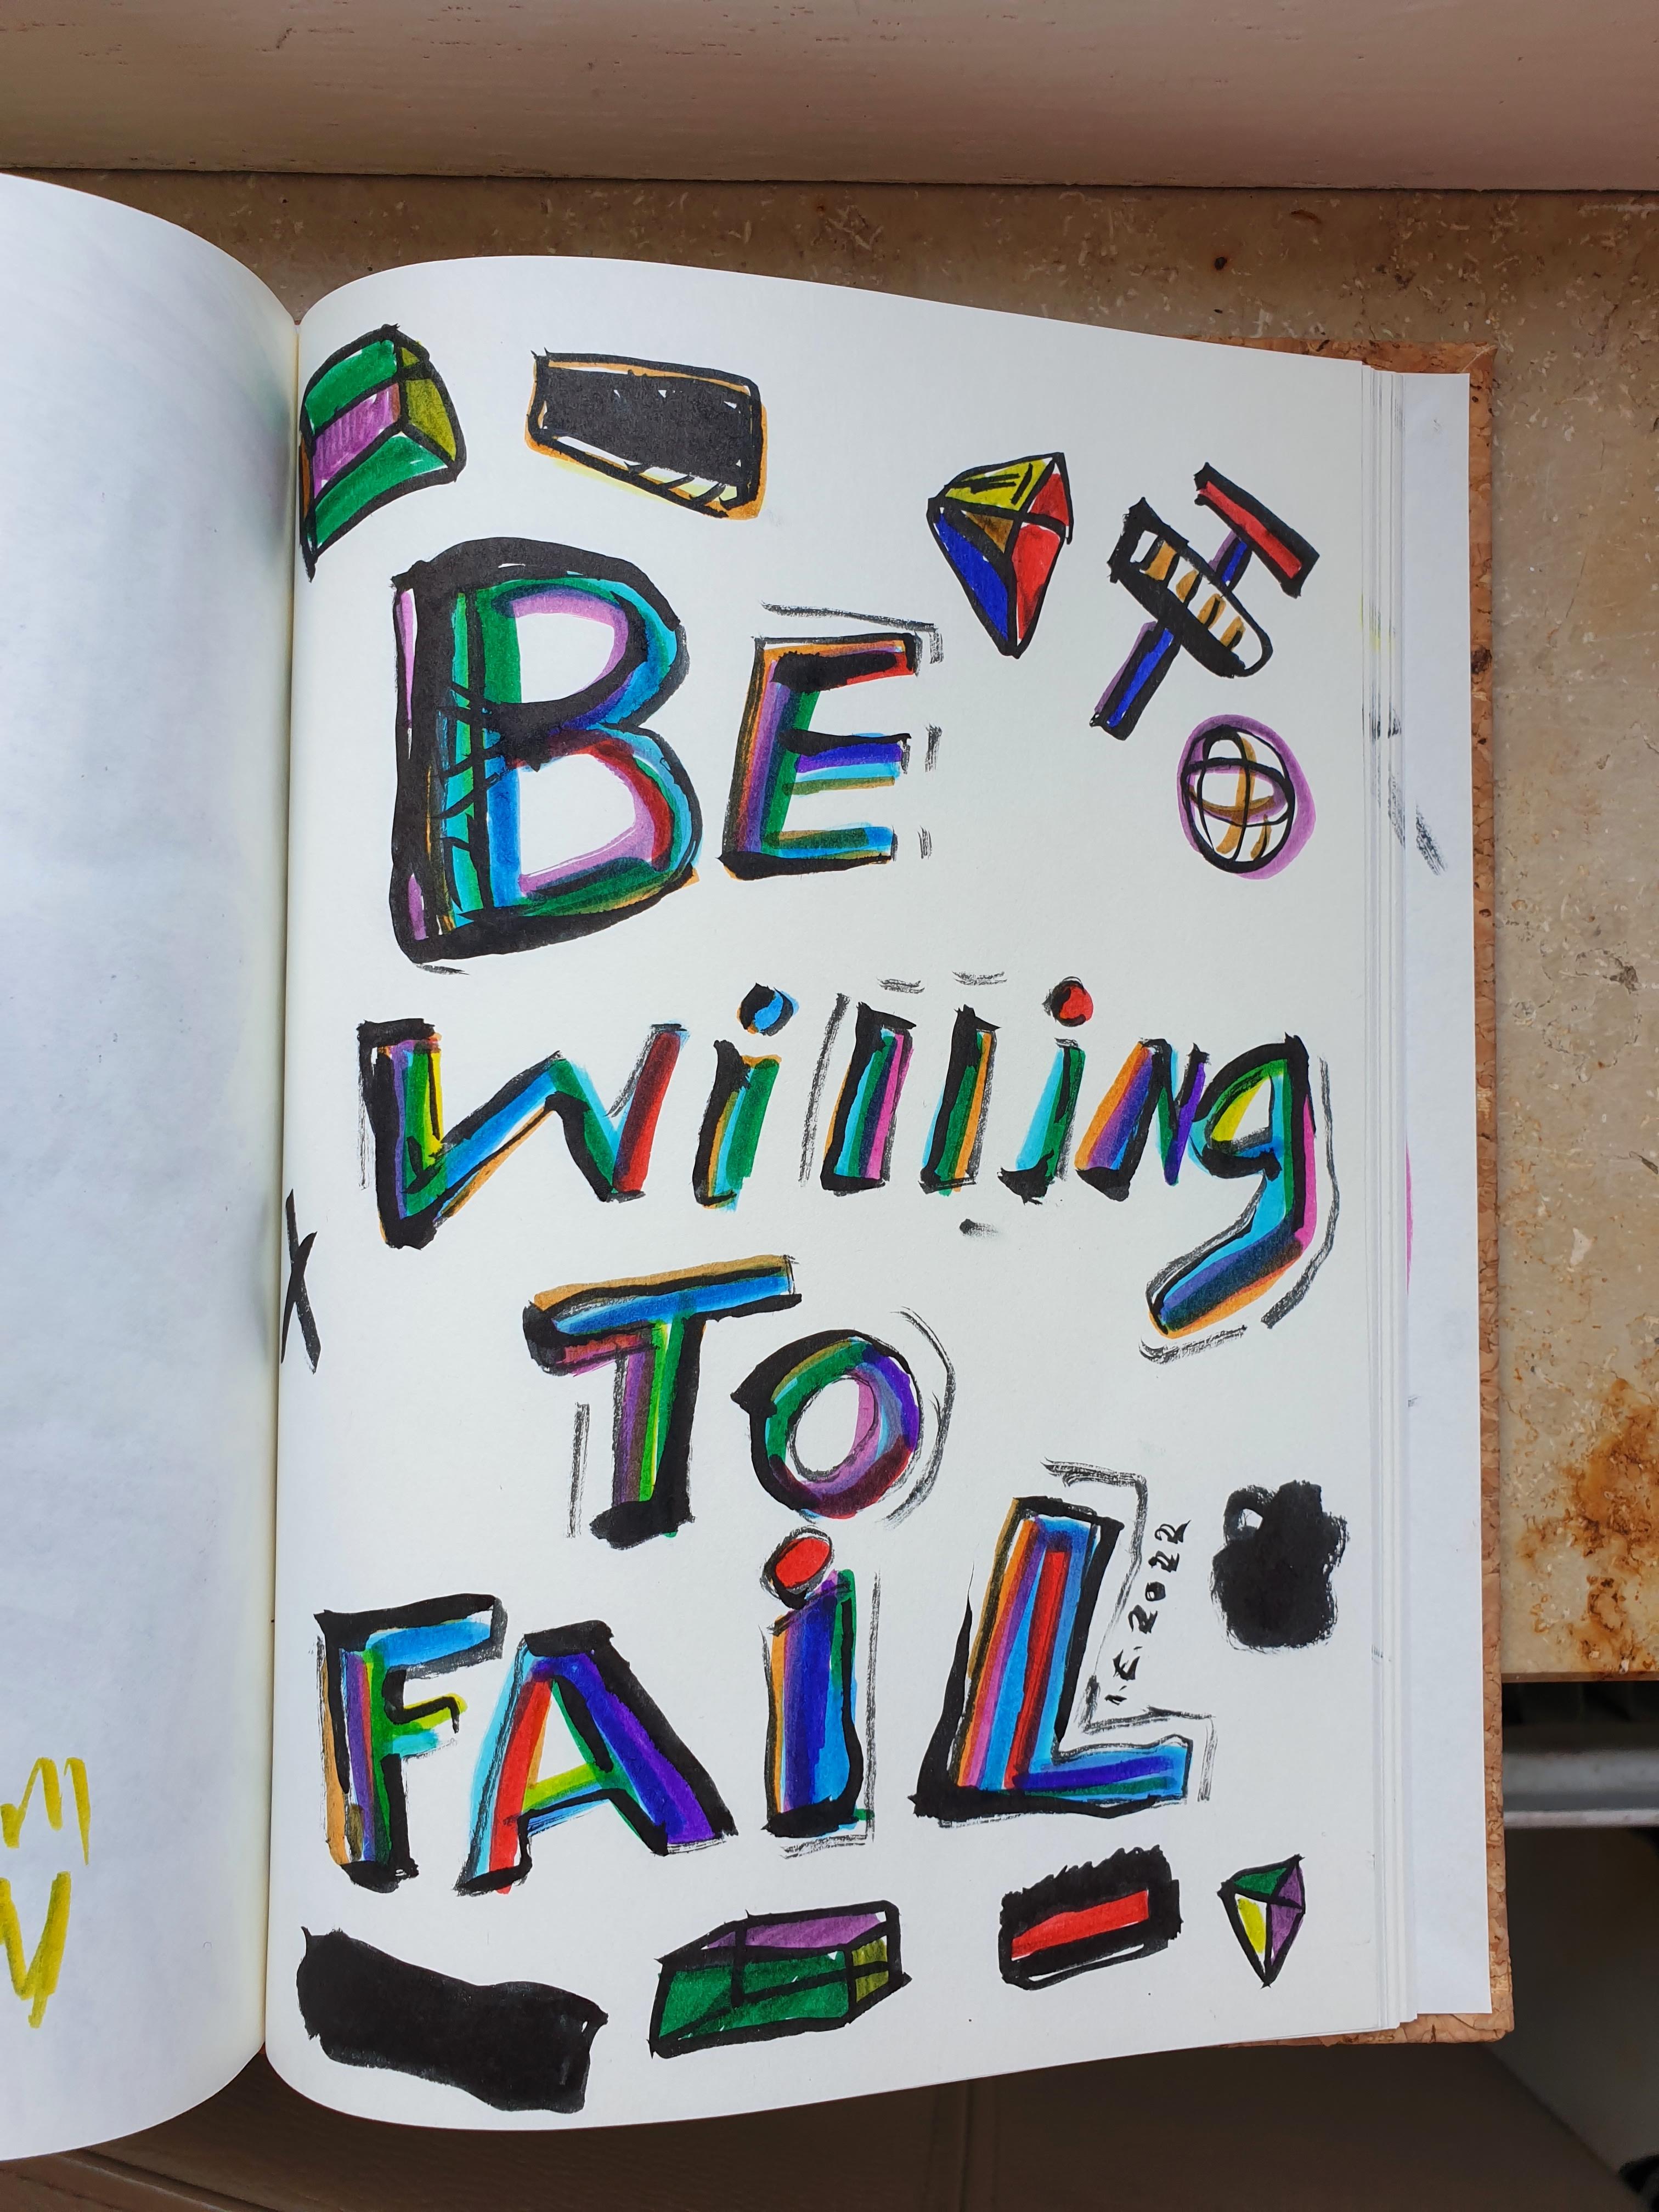 BE
Willing
TO
FAiL